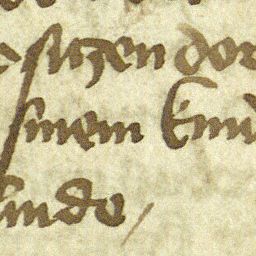 sitzen dor
sinem kind
kinde /